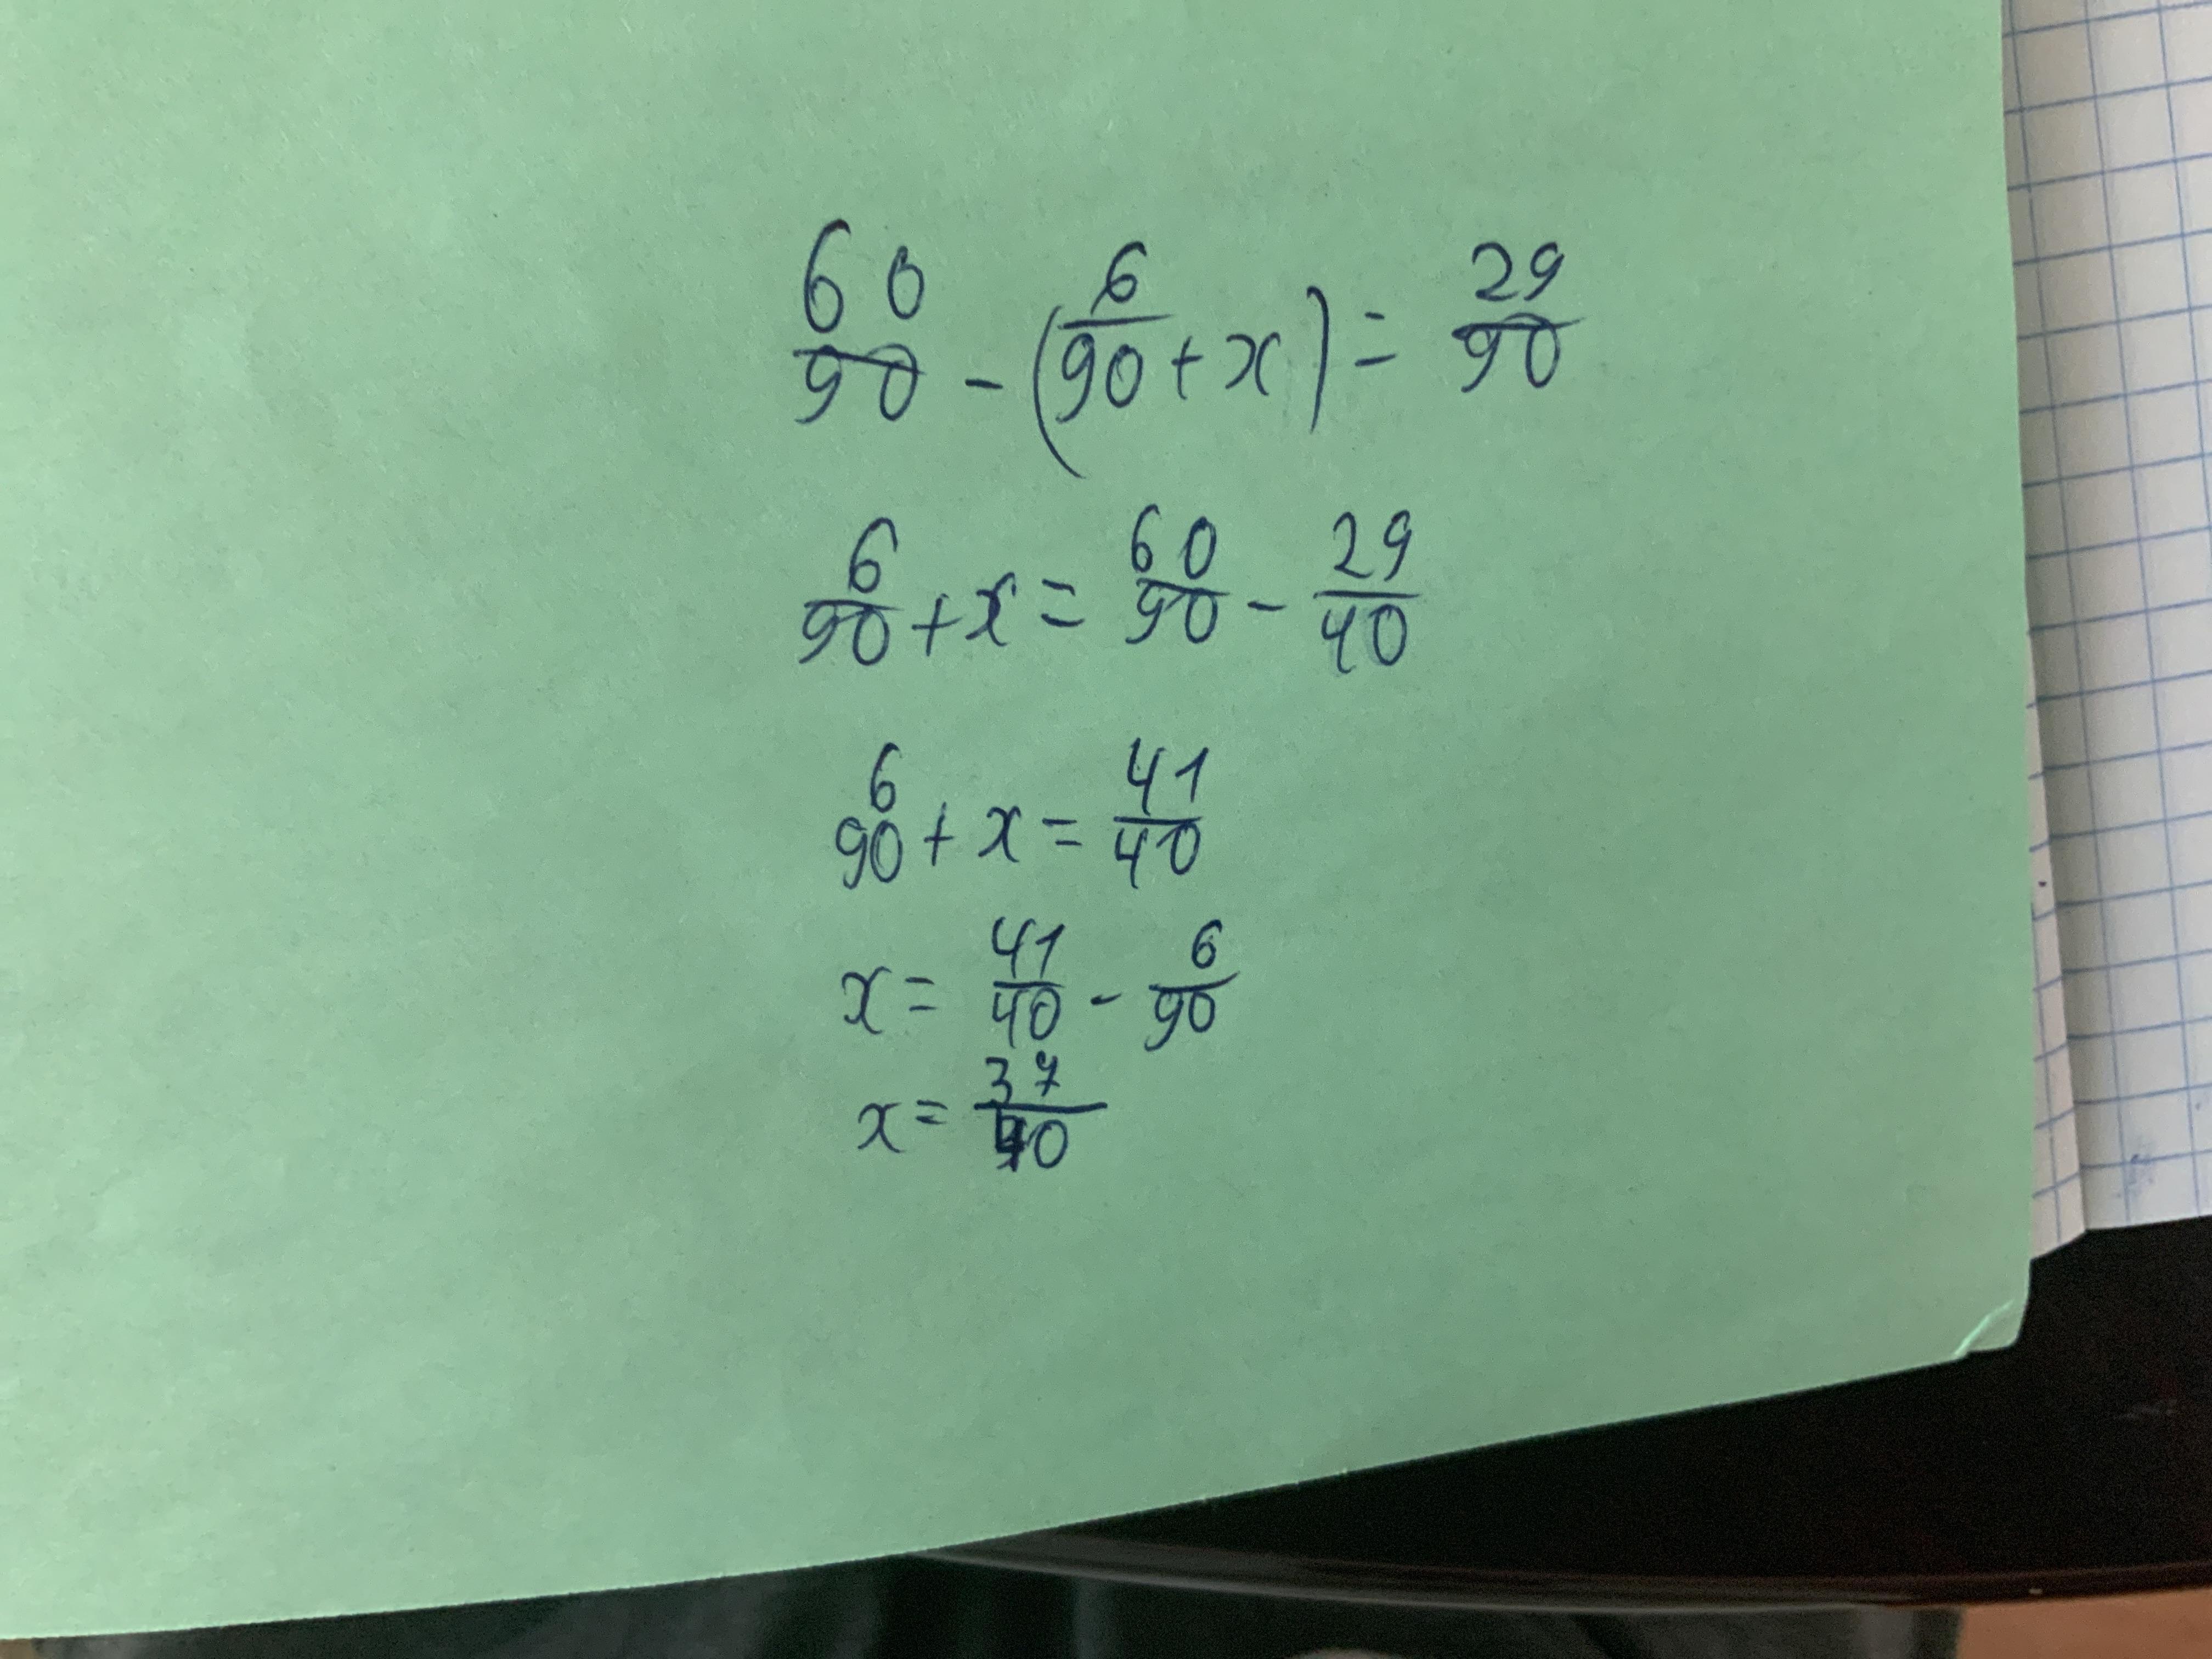 60/90 - (6/90 + x) = 29/90
6/90 + x = 60/90 - 29/40
6/90 + x = 41/40
x = 41/40 - 6/90
x = 37/40